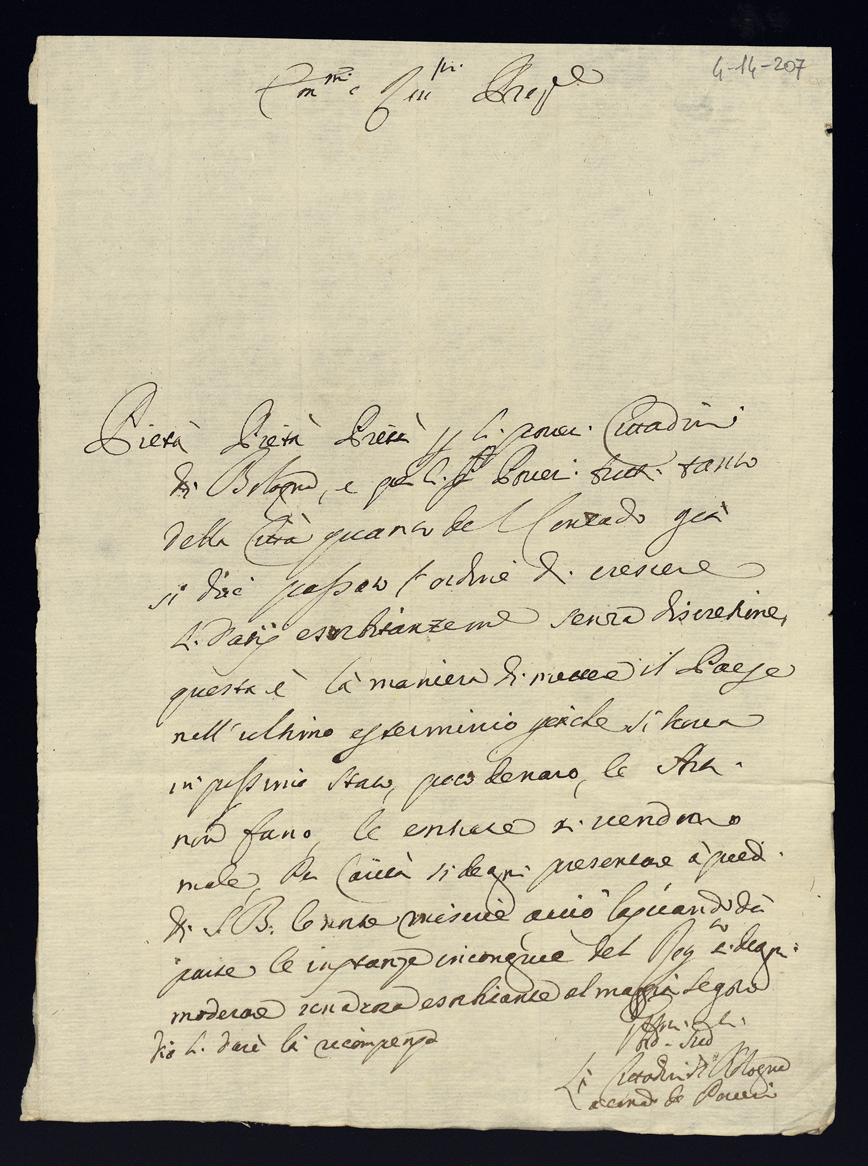 4-14-207
Em.mo e
Pietà Pietà Pietà li poveri Cittadini
di Bologna, e per li Poveri tutti tanto
della Città quanto del Contado già
si dice passato l'ordine di crescere
li Datij esorbitanzeme senza discretione,
questa è la maniera di mettere il Paese
nell'ultimo esterminio perche si trova
in pessimo stato, poco denaro, le Arti
non fano, le entrate si vendono
male, Per Carità si degni presentare à piedi
di S. B. le nostre miserie acciò lasciando dà
parte le instanze incongrue del Regto si degni
moderare una esorbitante al maggior segno
Dio li darà la ricompensa
Li Cittadini di Bologna
de Poveri